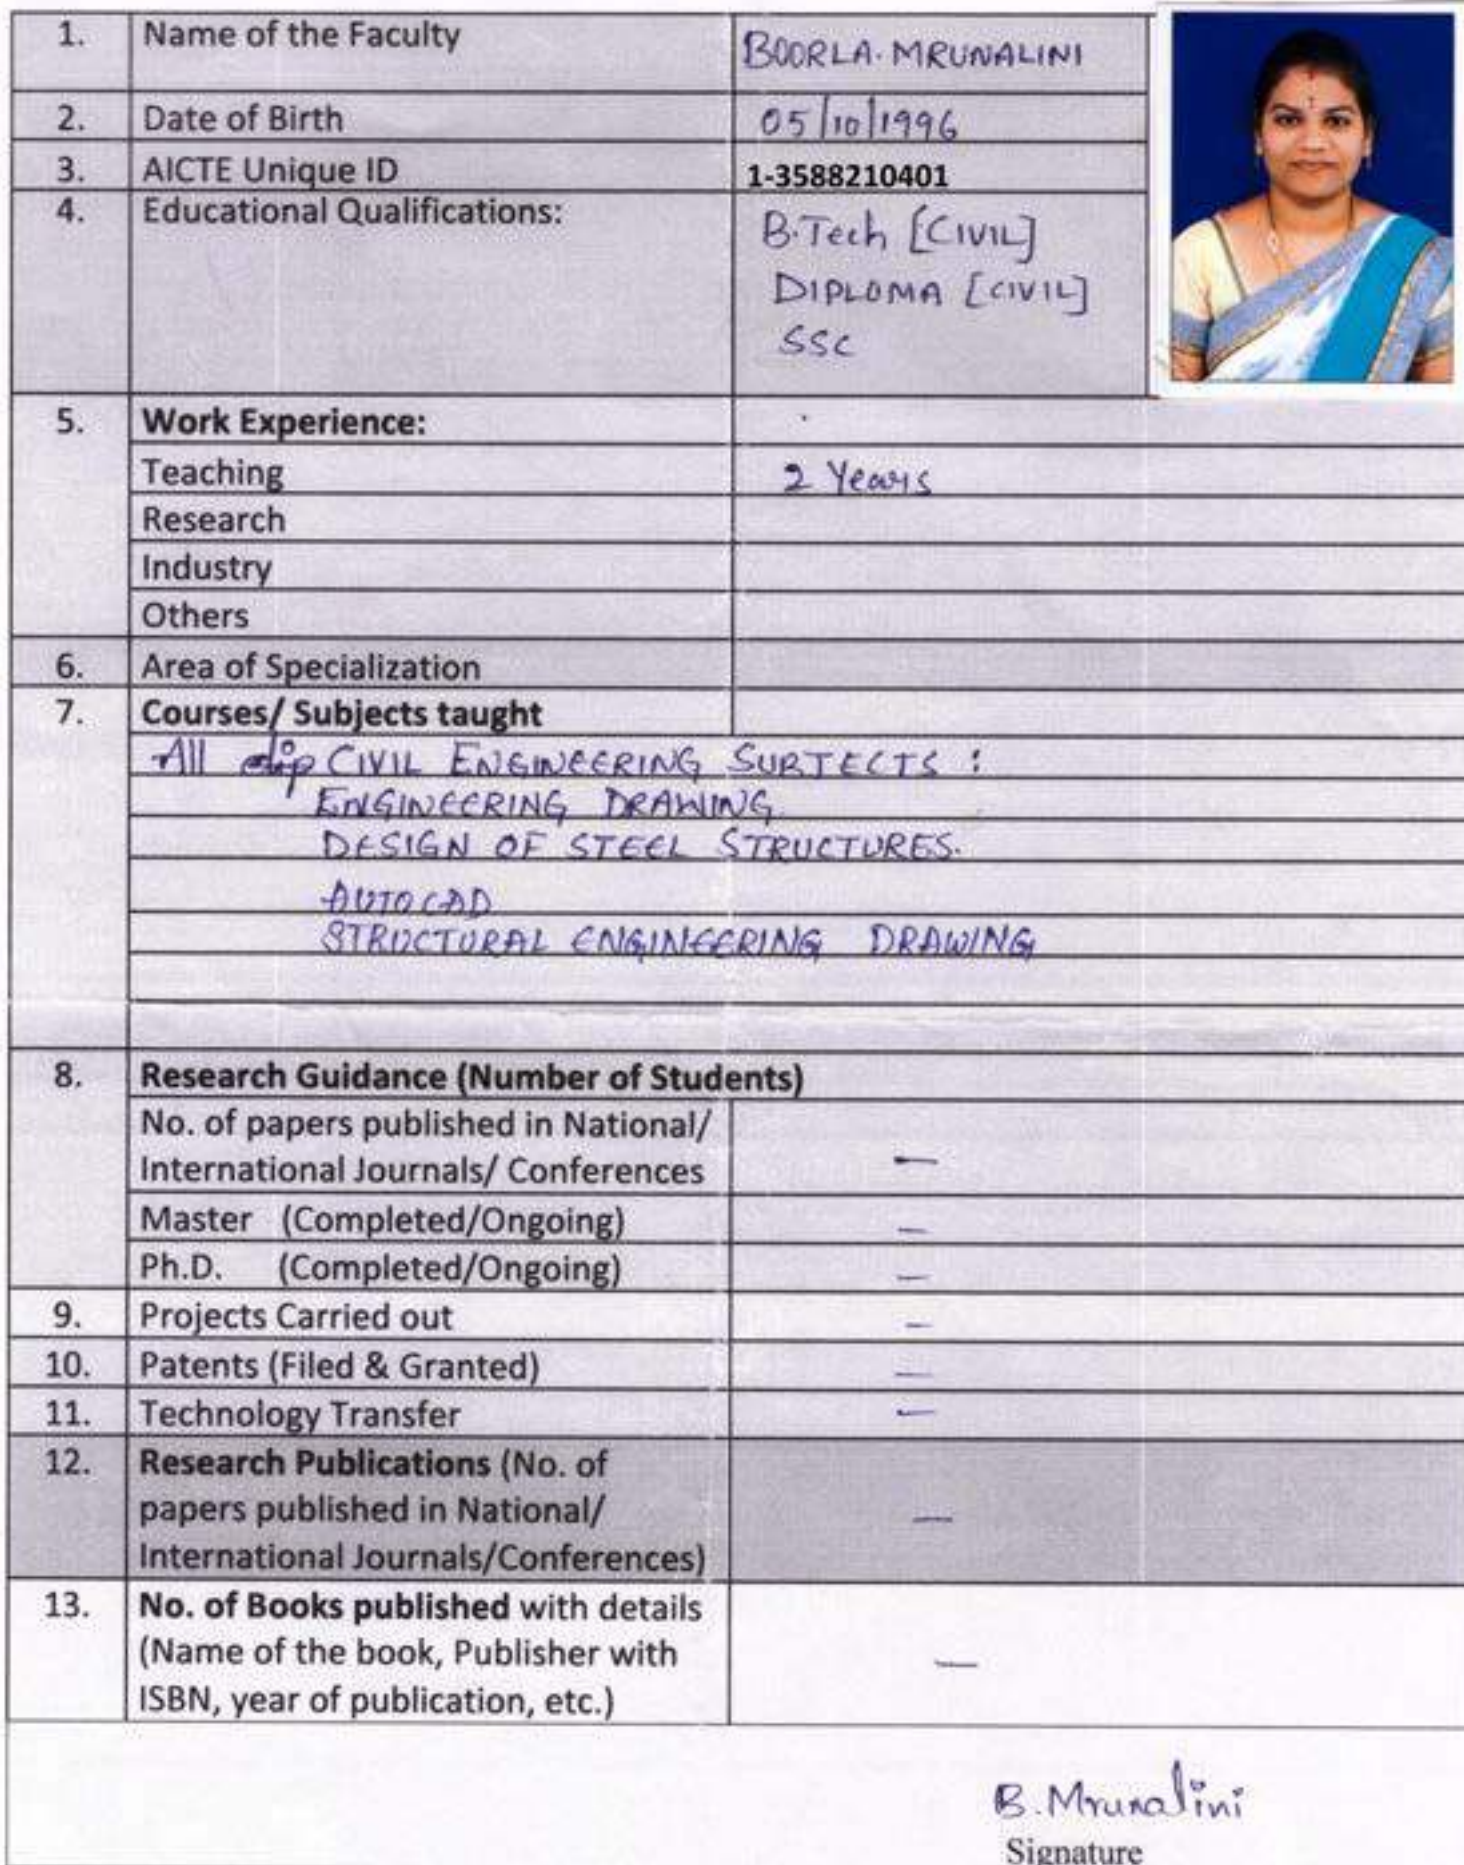 1. Name of the Faculty BOORLA. MRUNALINI
2. Date of Birth 05/10/1996
3. AICTE Unique ID 1-3588210401
4. Educational Qualifications: B.Tech [CIVIL]
DIPLOMA [CIVIL]
SSC
5. Work Experience:
Teaching 2 Years
Research
Industry
Others
6. Area of Specialization
7. Courses/ Subjects taught
All dip CIVIL ENGINEERING SUBJECTS :
ENGINEERING DRAWING
DESIGN OF STEEL STRUCTURES.
AUTOCAD
STRUCTURAL ENGINEERING DRAWING
8. Research Guidance (Number of Students)
No. of papers published in National/
International Journals/ Conferences —
Master (Completed/Ongoing) —
Ph.D. (Completed/Ongoing) —
9. Projects Carried out —
10. Patents (Filed & Granted) —
11. Technology Transfer —
12. Research Publications (No. of
papers published in National/ —
International Journals/Conferences)
13. No. of Books published with details
(Name of the book, Publisher with —
ISBN, year of publication, etc.)
B. Mrunalini
Signature